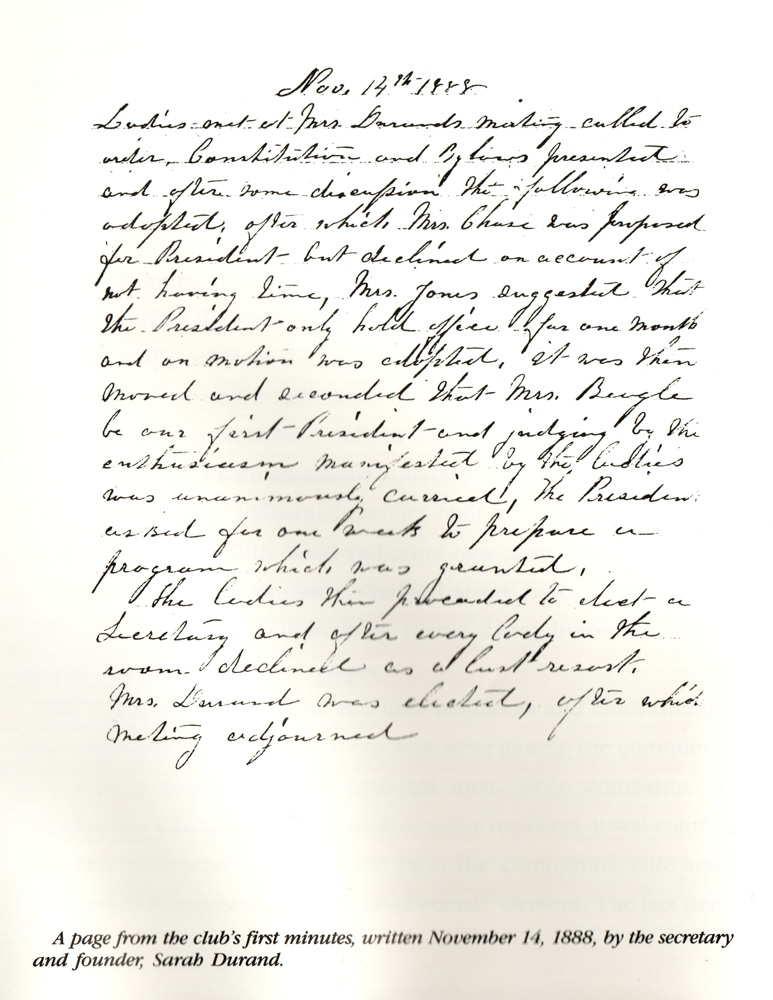 Nov. 14th 1888
Ladies met at Mrs Durands meeting called to
order, Constitution and Bylaws presented
and after some discussion the following was
adopted, after which Mrs. Chase was proposed
for President but declined on account of
not having time, Mrs. Jones suggested that
the President only hold office for one month
and on motion was adopted, it was then
moved and seconded that Mrs. Beagle
be our first President and judging by the
enthusiasm manifested by the ladies
was unanimously carried, The Presiden
asked for one week to prepare a
program which was granted,
The ladies then proceeded to elect a
Secretary and after every lady in the
room declined as a last resort.
Mrs. Durand was elected, after which
meeting adjourned
A page from the club's first minutes, written November 14, 1888, by the secretary
and founder, Sarah Durand.